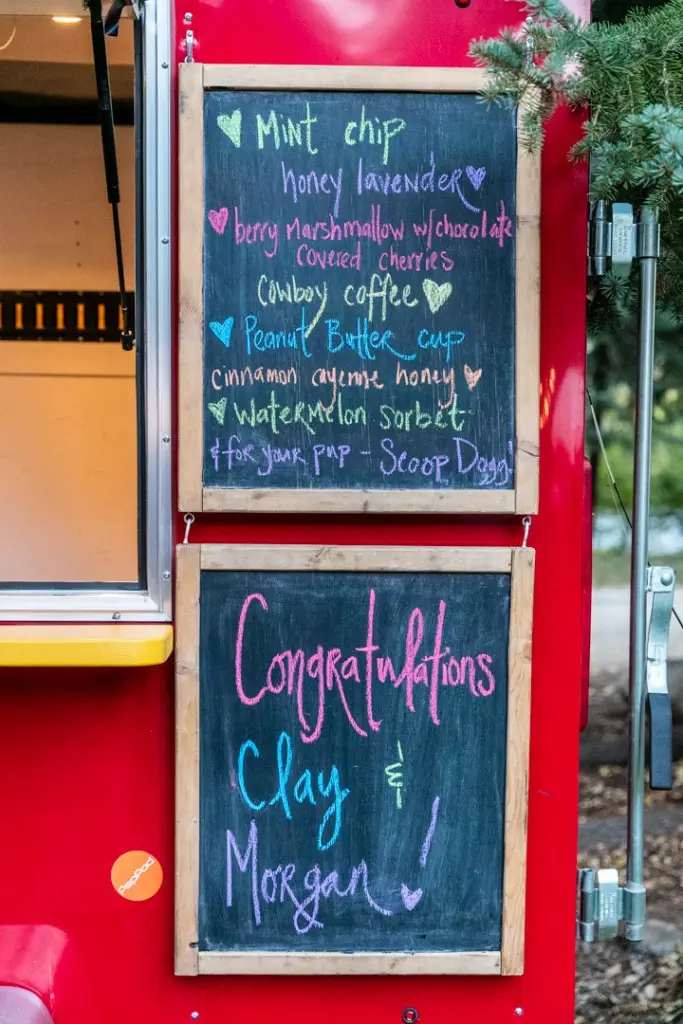 Mint chip
honey lavender
berry Marshmallow w/chocolate
covered cherries
Cowboy coffee
Peanut Butter cup
cinnamon cayenne honey
Watermelon sorbet
& for your pup - Scoop Dogg!
Congratulations
Clay &
Morgan!
PopPod